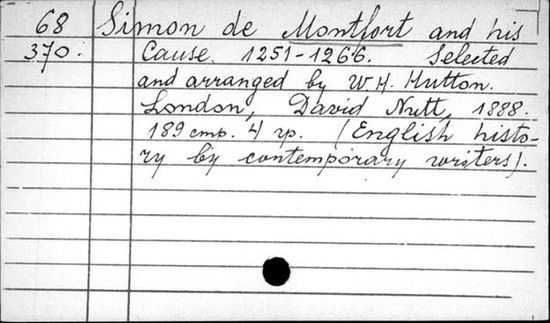 68 Simon de Montfort and his
370. Cause. 1251-1266. Selected
and arranged by W.H. Hutton.
London, David Nutt, 1888.
189 стр. 4 гр. (English histo-
ry by contemporary writers).